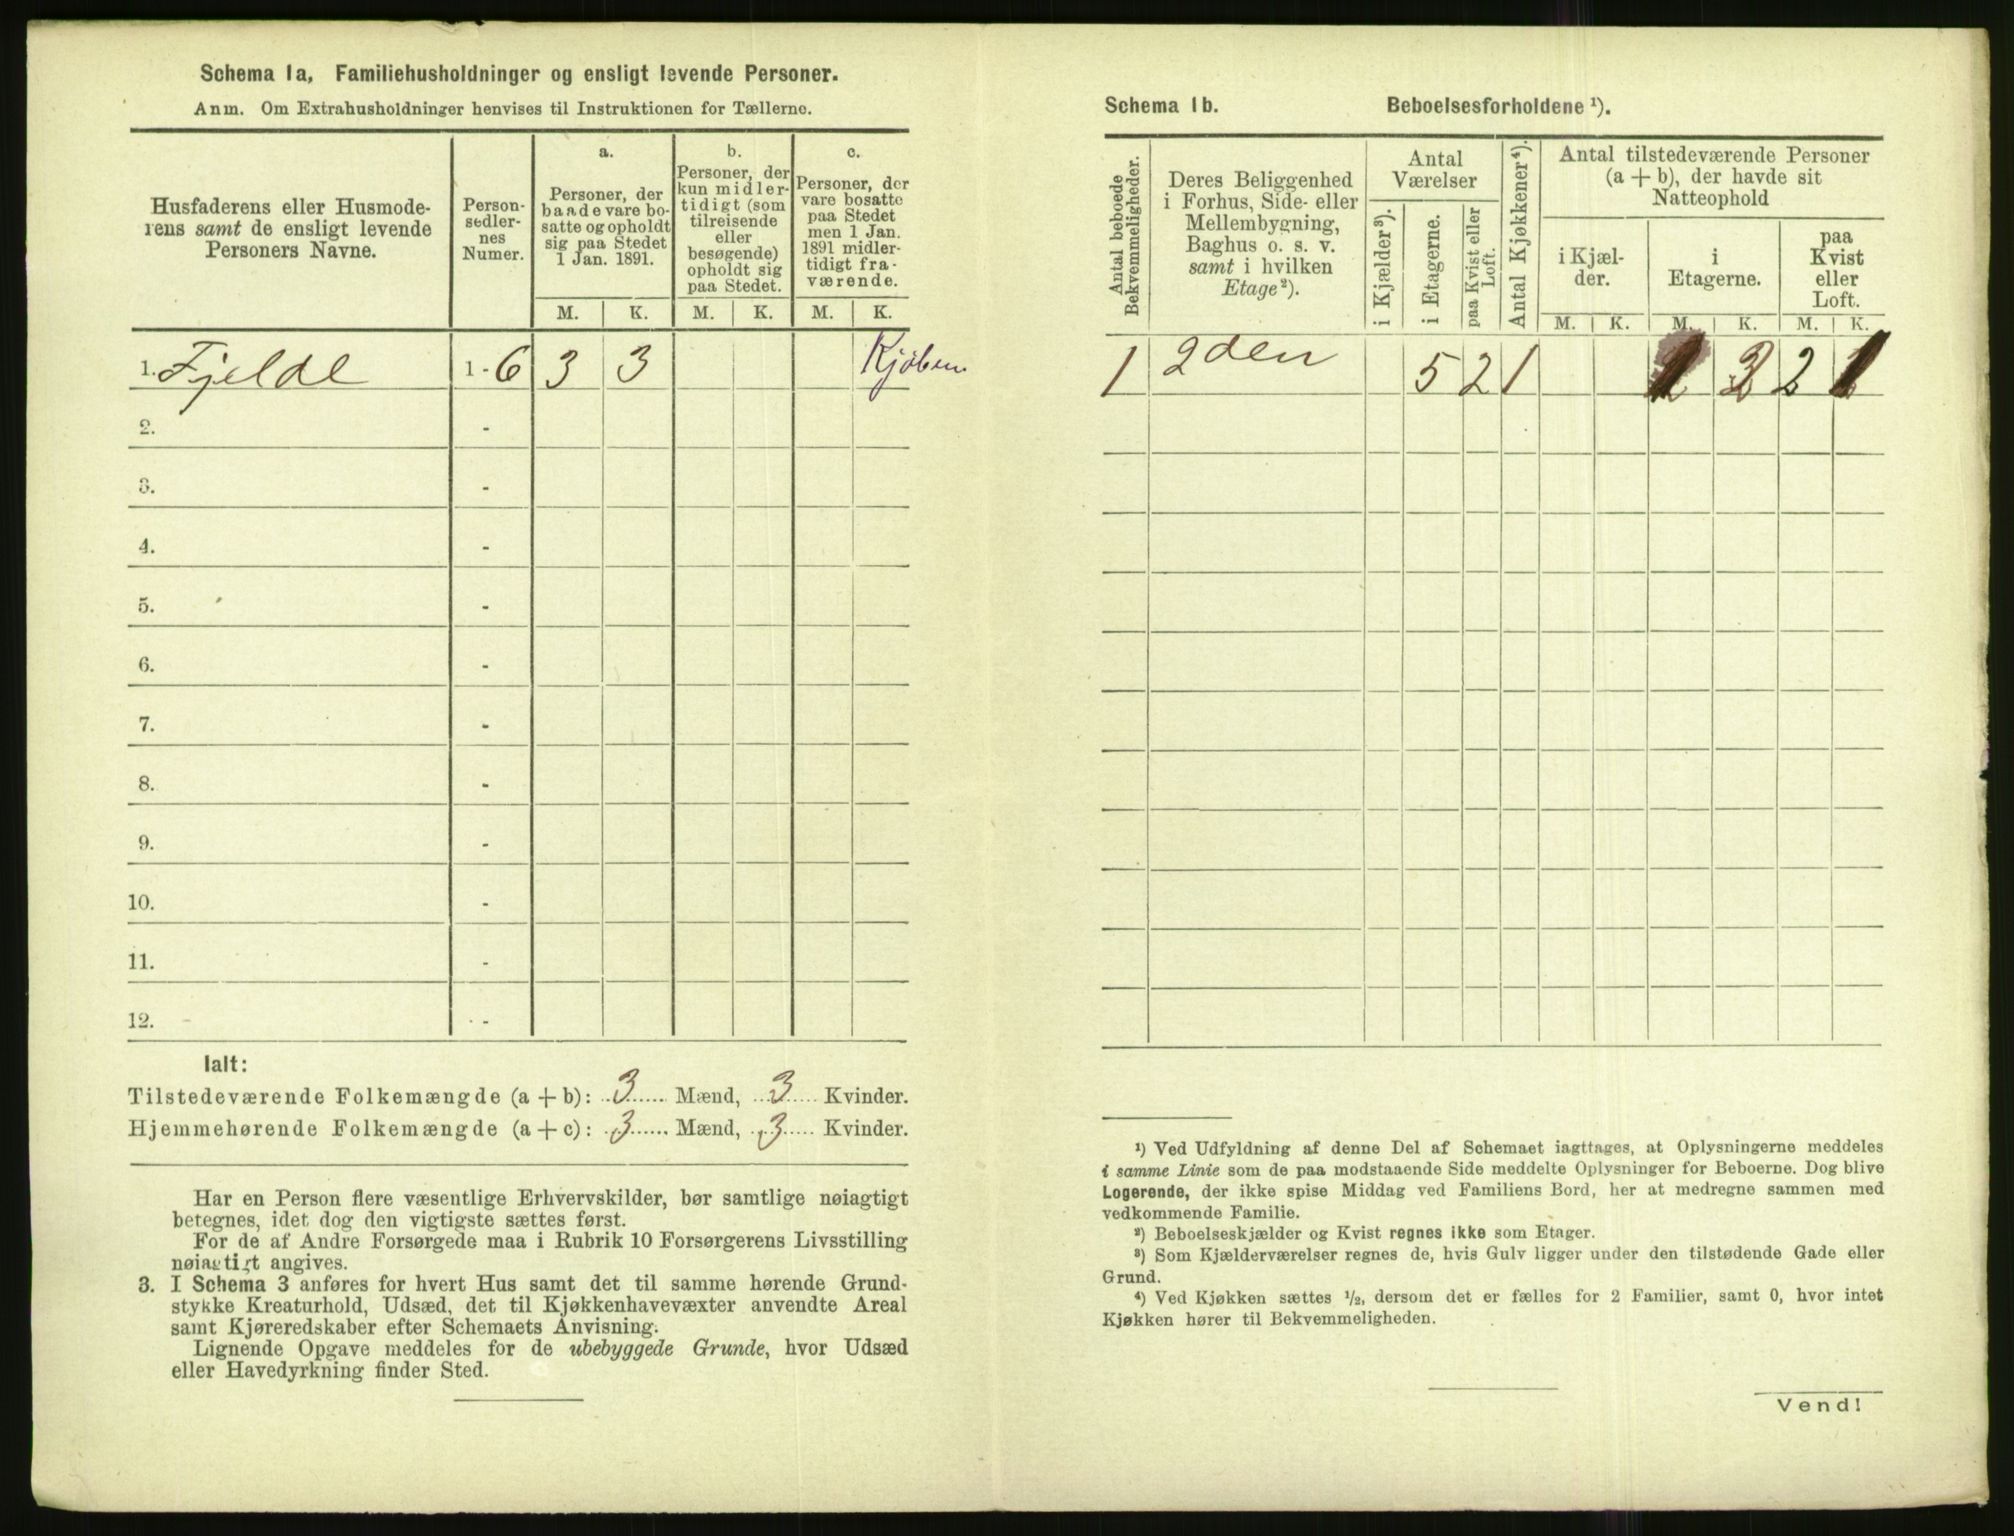 Schema 1a, Familiehusholdninger og ensligt levende Personer.
Anm. Om Extrahusholdninger henvises til Instruktionen for Tællerne.
Husfaderens eller Husmode-
rens samt de ensligt levende
Personers Navne.
Person-
sedler-
nes
Numer.
a.
Personer, der
baade vare bo-
satte og opholdt
sig paa Stedet
1 Jan. 1891.
b.
Personer, der
kun midler-
tidigt (som
tilreisende
eller
besøgende)
opholdt sig
paa Stedet.
c.
Personer, der
vare bosatte
paa Stedet
men 1 Jan.
1891 midler-
tidigt fra-
værende.
M. K. M. K. M. K.
1. Fjelde 1 - 6 3 3 Kjøben
2. -
3. -
4. -
5. -
6. -
7. -
8. -
9. -
10. -
11. -
12. -
Ialt:
Tilstedeværende Folkemængde (a + b): 3 Mænd, 3 Kvinder.
Hjemmehørende Folkemængde (a + c): 3 Mænd, 3 Kvinder.
Har en Person flere væsentlige Erhvervskilder, bør samtlige nøiagtigt
betegnes, idet dog den vigtigste sættes først.
For de af Andre Forsørgede maa i Rubrik 10 Forsørgerens Livsstilling
nøiagtigt angives.
3. I Schema 3 anføres for hvert Hus samt det til samme hørende Grund-
stykke Kreaturhold, Udsæd, det til Kjøkkenhavevæxter anvendte Areal
samt Kjøreredskaber efter Schemaets Anvisning.
Lignende Opgave meddeles for de ubebyggede Grunde, hvor Udsæd
eller Havedyrkning finder Sted.
Schema 1b. Beboelsesforholdene ¹).
Antal beboede
Bekvemmeligheder.
Deres Beliggenhed
i Forhus, Side- eller
Mellembygning,
Baghus o. s. v.
samt i hvilken
Etage ²).
Antal
Værelser
i Kjælder ³).
i Etagerne.
paa Kvist eller
Loft.
Antal Kjøkkener ⁴).
Antal tilstedeværende Personer
(a + b), der havde sit
Natteophold
i Kjæl-
der.
i
Etagerne.
paa
Kvist
eller
Loft.
M. K. M. K. M. K.
1 2den 5 2 1 2
¹) Ved Udfyldning af denne Del af Schemaet iagttages, at Oplysningerne meddeles
i samme Linie som de paa modstaaende Side meddelte Oplysninger for Beboerne. Dog blive
Logerende, der ikke spise Middag ved Familiens Bord, her at medregne sammen med
vedkommende Familie.
²) Beboelseskjælder og Kvist regnes ikke som Etager.
³) Som Kjælderværelser regnes de, hvis Gulv ligger under den tilstødende Gade eller
Grund.
⁴) Ved Kjøkken sættes ½, dersom det er fælles for 2 Familier, samt 0, hvor intet
Kjøkken hører til Bekvemmeligheden.
Vend!